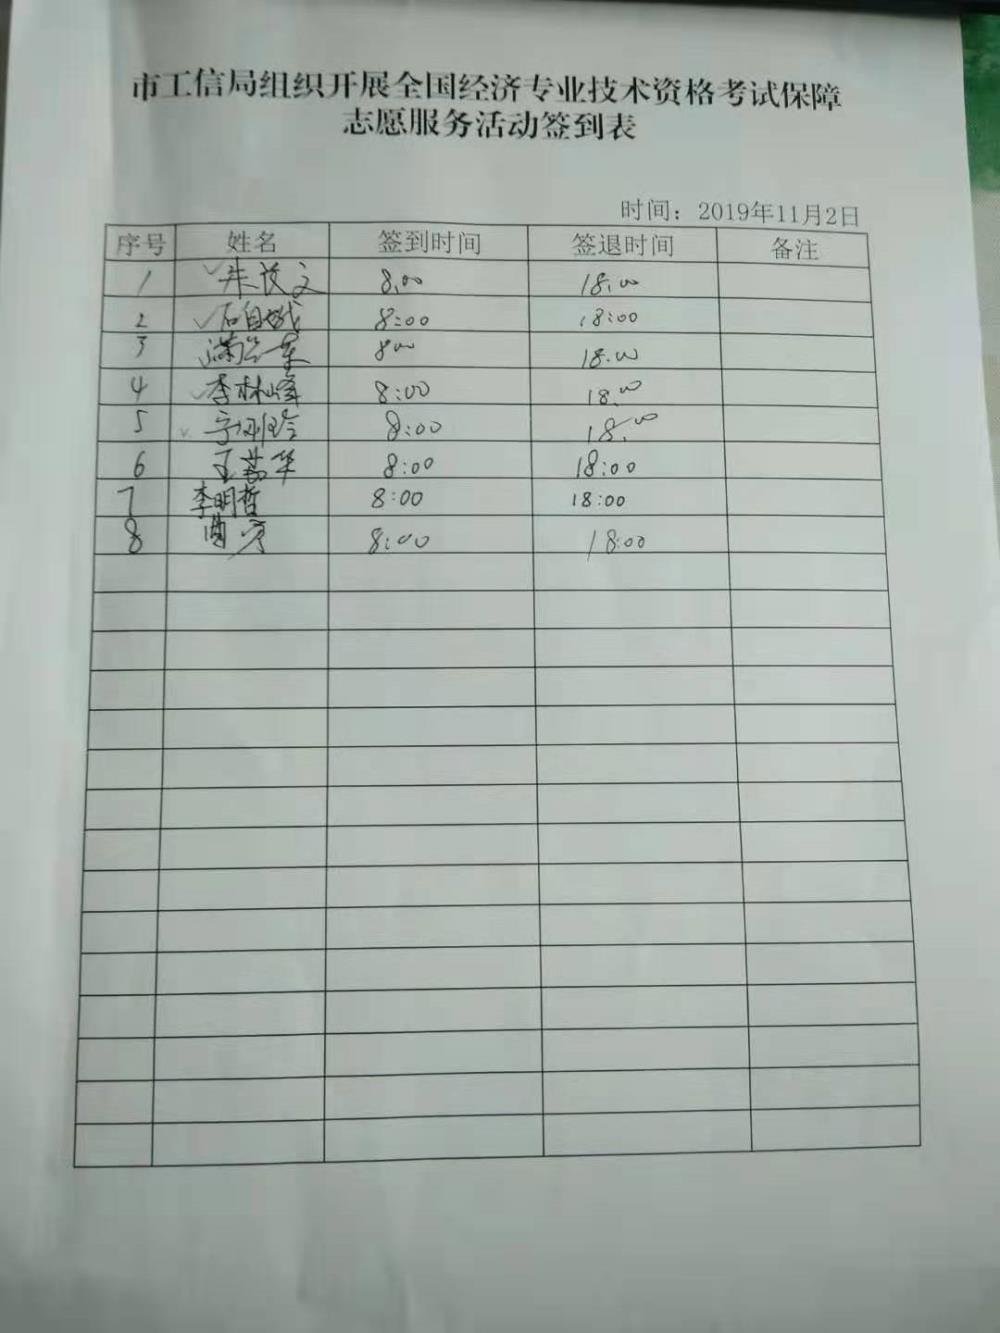 市工信局组织开展全国经济专业技术资格考试保障
志愿服务活动签到表
时间：2019年11月2日
序号 姓名 签到时间 签退时间 备注
1 朱 文 8.00 18.00
2 8:00 18:00
3 800 18.00
4 李林峰 8:00 18.00
5 8:00 18.00
6 王 华 8:00 18:00
7 李明哲 8:00 18:00
8 曲 8:00 18:00